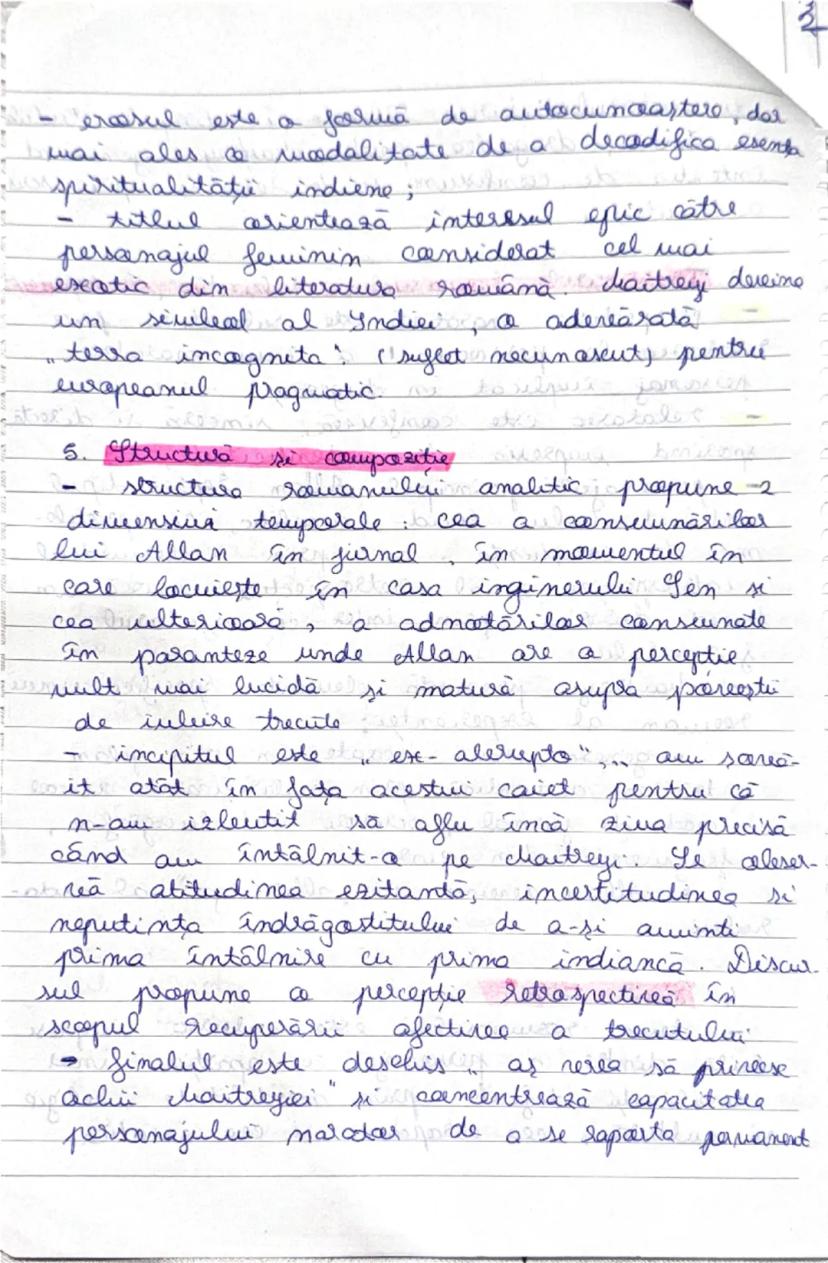 2
- erosul este o formă de autocunoaștere, dar
mai ales o modalitate de a decodifica esența
spiritualității indiene;
- titlul orientează interesul epic către
personajul feminin considerat cel mai
exotic din literatura română. Maitreyi devine
un simbol al Indiei, o adevărată
"terra incognita". (suflet necunoscut) pentru
europeanul pragmatic.
5. Structură și compoziție
- structura romanului analitic propune 2
dimensiuni temporale: cea a consemnărilor
lui Allan în jurnal, în momentul în
care locuiește în casa inginerului Sen și
cea ulterioară, a adnotărilor consemnate
în paranteze unde Allan are o percepție
mult mai lucidă și matură asupra poveștii
de iubire trecute
- incipitul este "ex-abrupto" .. am șovă-
it atât în fața acestui caiet pentru că
n-am izbutit să aflu încă ziua precisă
când am întâlnit-o pe Maitreyi. Se obser-
vă atitudinea ezitantă, incertitudinea și
neputința îndrăgostitului de a-și aminti
prima întâlnire cu prima indiancă. Discur-
sul propune o percepție retrospectivă în
scopul recuperării afective a trecutului
- finalul este deschis "aș vrea să privesc
ochii Maitreyiei" și concentrează capacitatea
personajului narator de a se raporta permanent